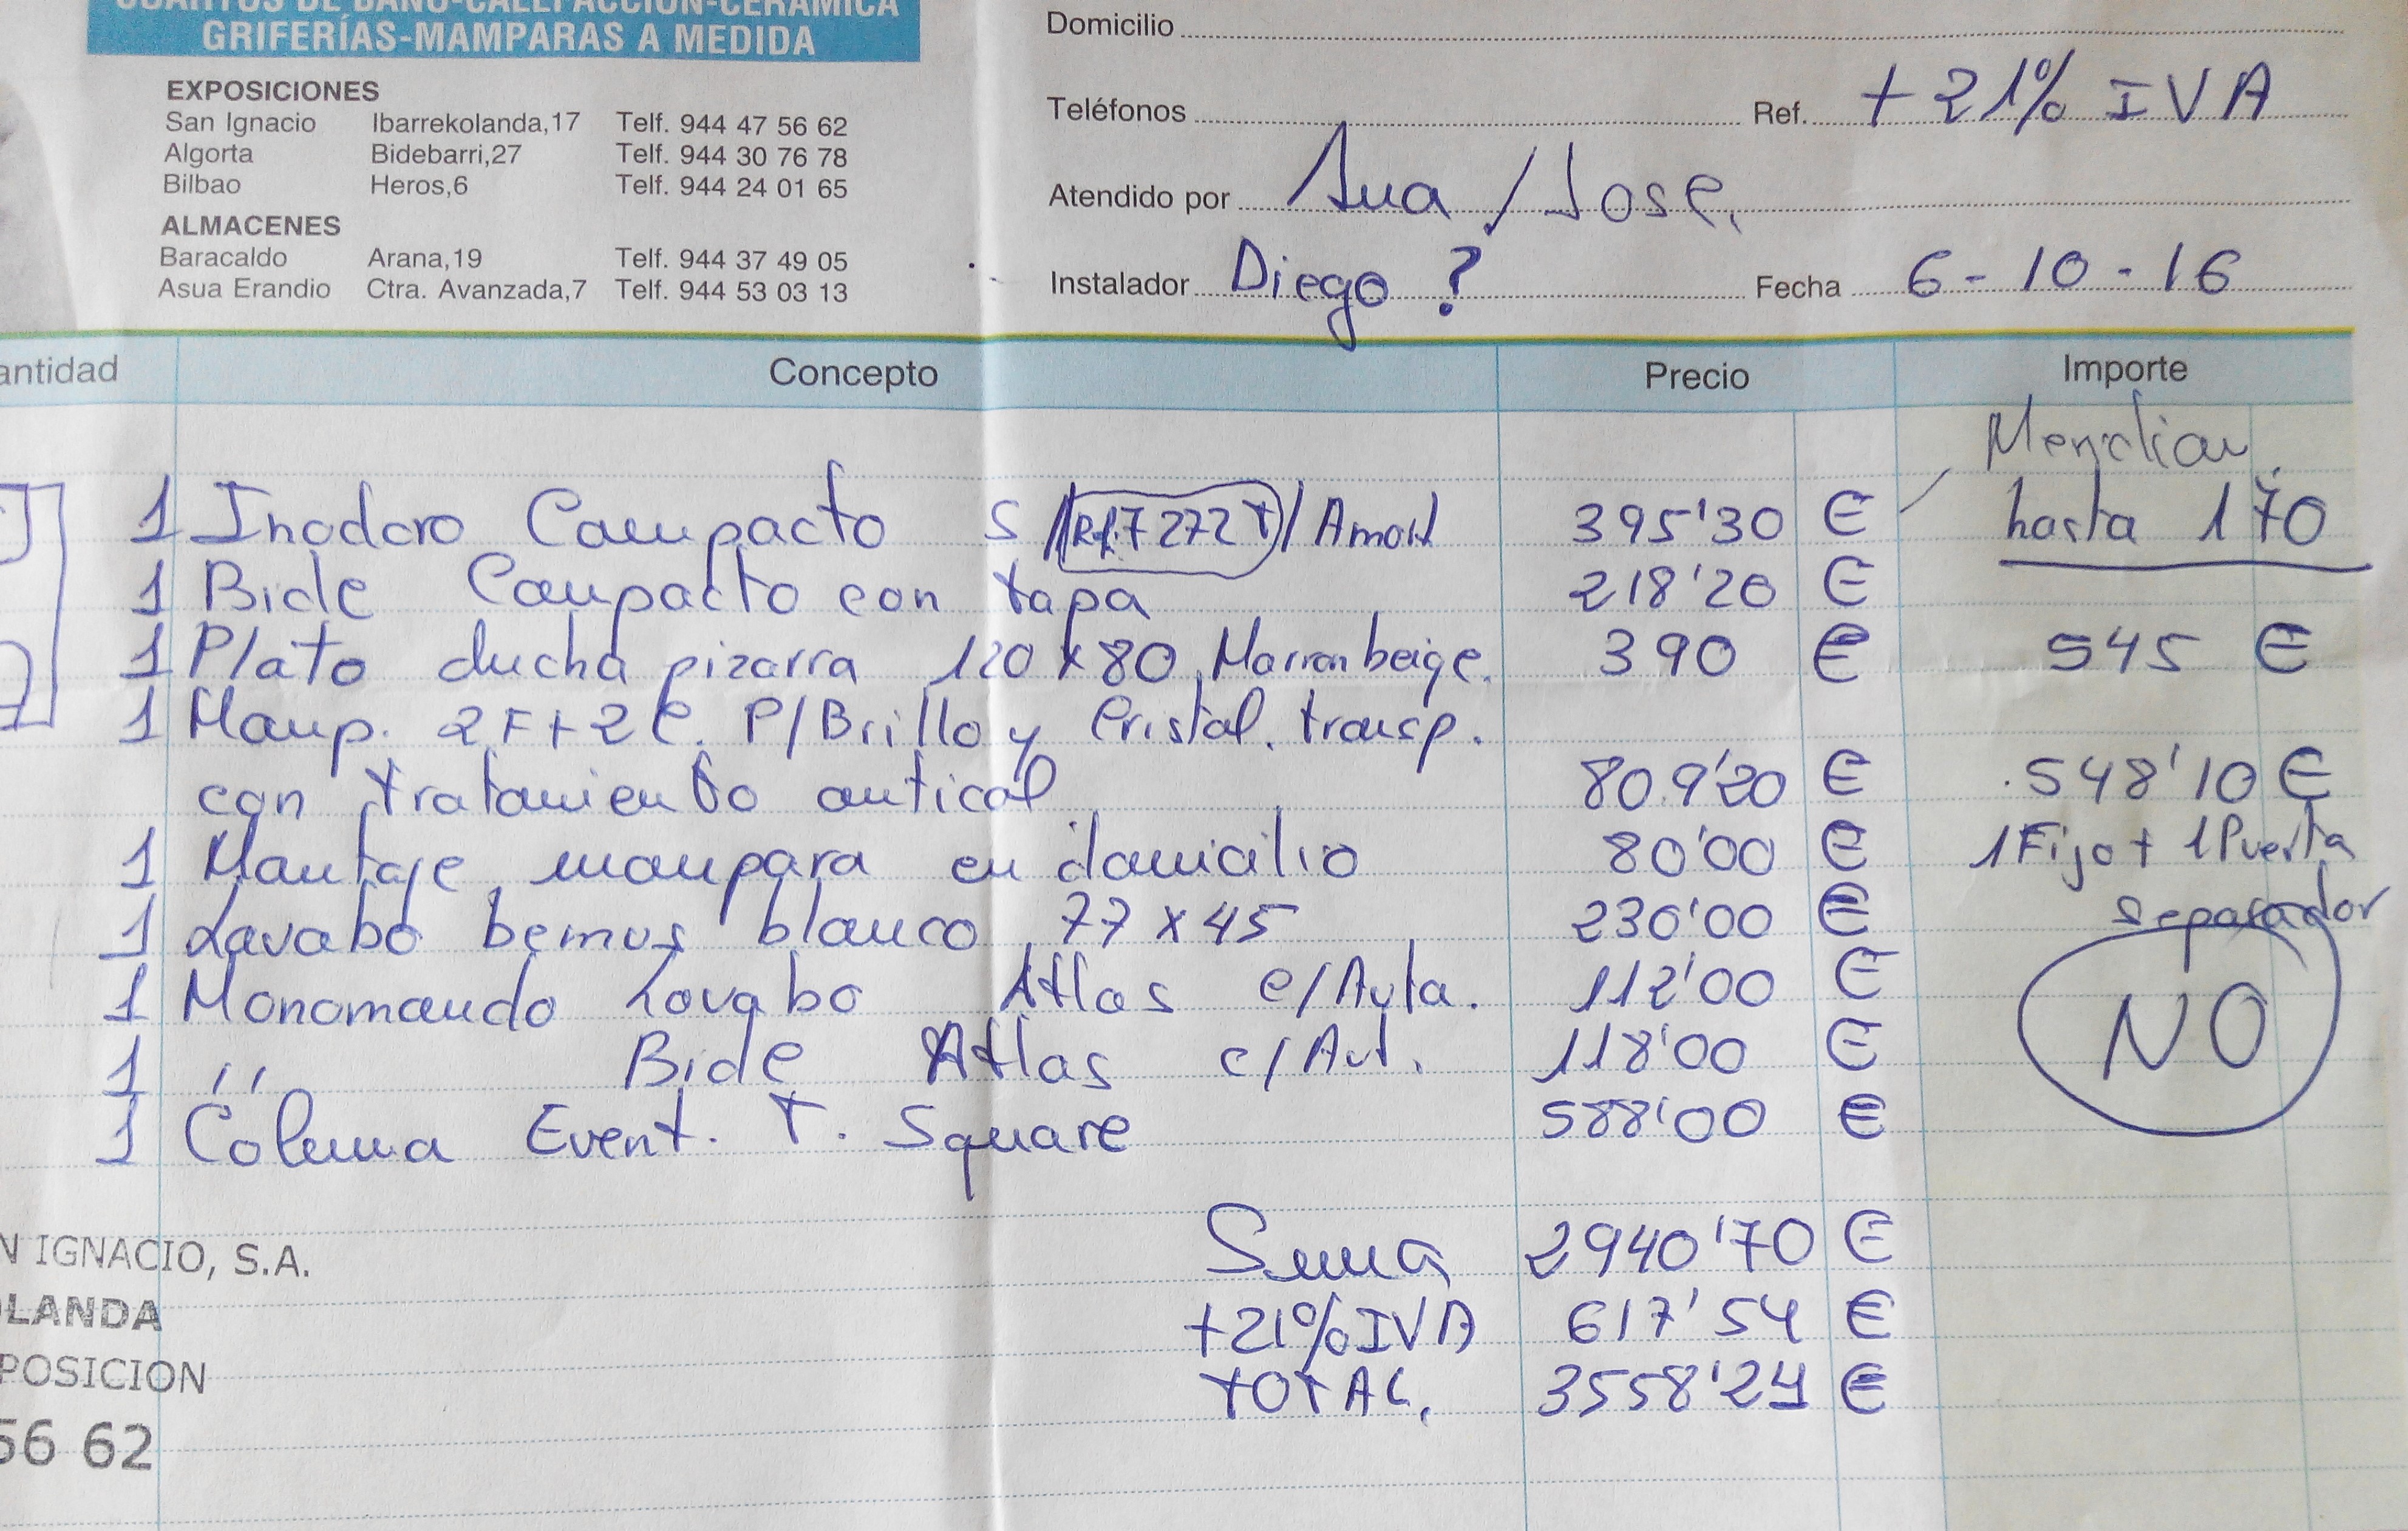 CUARTOS DE BAÑO-CALEFACCIÓN-CERÁMICA
GRIFERÍAS-MAMPARAS A MEDIDA
EXPOSICIONES
San Ignacio Ibarrekolanda,17 Telf. 944 47 56 62
Algorta Bidebarri,27 Telf. 944 30 76 78
Bilbao Heros,6 Telf. 944 24 01 65
ALMACENES
Baracaldo Arana,19 Telf. 944 37 49 05
Asua Erandio Ctra. Avanzada,7 Telf. 944 53 03 13
Domicilio
Teléfonos Ref. + 21% IVA
Atendido por Ana / Jose,
Instalador Diego ? Fecha 6-10-16
antidad Concepto Precio Importe
Meridian.
1 Inodoro Compacto S/Ref.7272T/Amort 395'30 € hasta 170
1 Bide Compacto con tapa 218'20 €
1 Plato ducha pizarra 120x80 Marron beige. 390 € 545 €
1 Mamp. 2F+2C. P/Brillo y Cristal. transp.
con tratamiento antical 809'20 € 548'10 €
1 Montaje mampara en domicilio 80'00 € 1 Fijo + 1 Puerta
1 Lavabo bemus blanco 77x45 230'00 € separador
1 Monomando Lavabo Atlas c/Auta. 112'00 € NO
1 " Bide Atlas c/Aut. 118'00 €
1 Coluna Event. T. Square 588'00 €
Suma 2940'70 €
+21% IVA 617'54 €
TOTAL, 3558'24 €
N IGNACIO, S.A.
OLANDA
POSICION
56 62